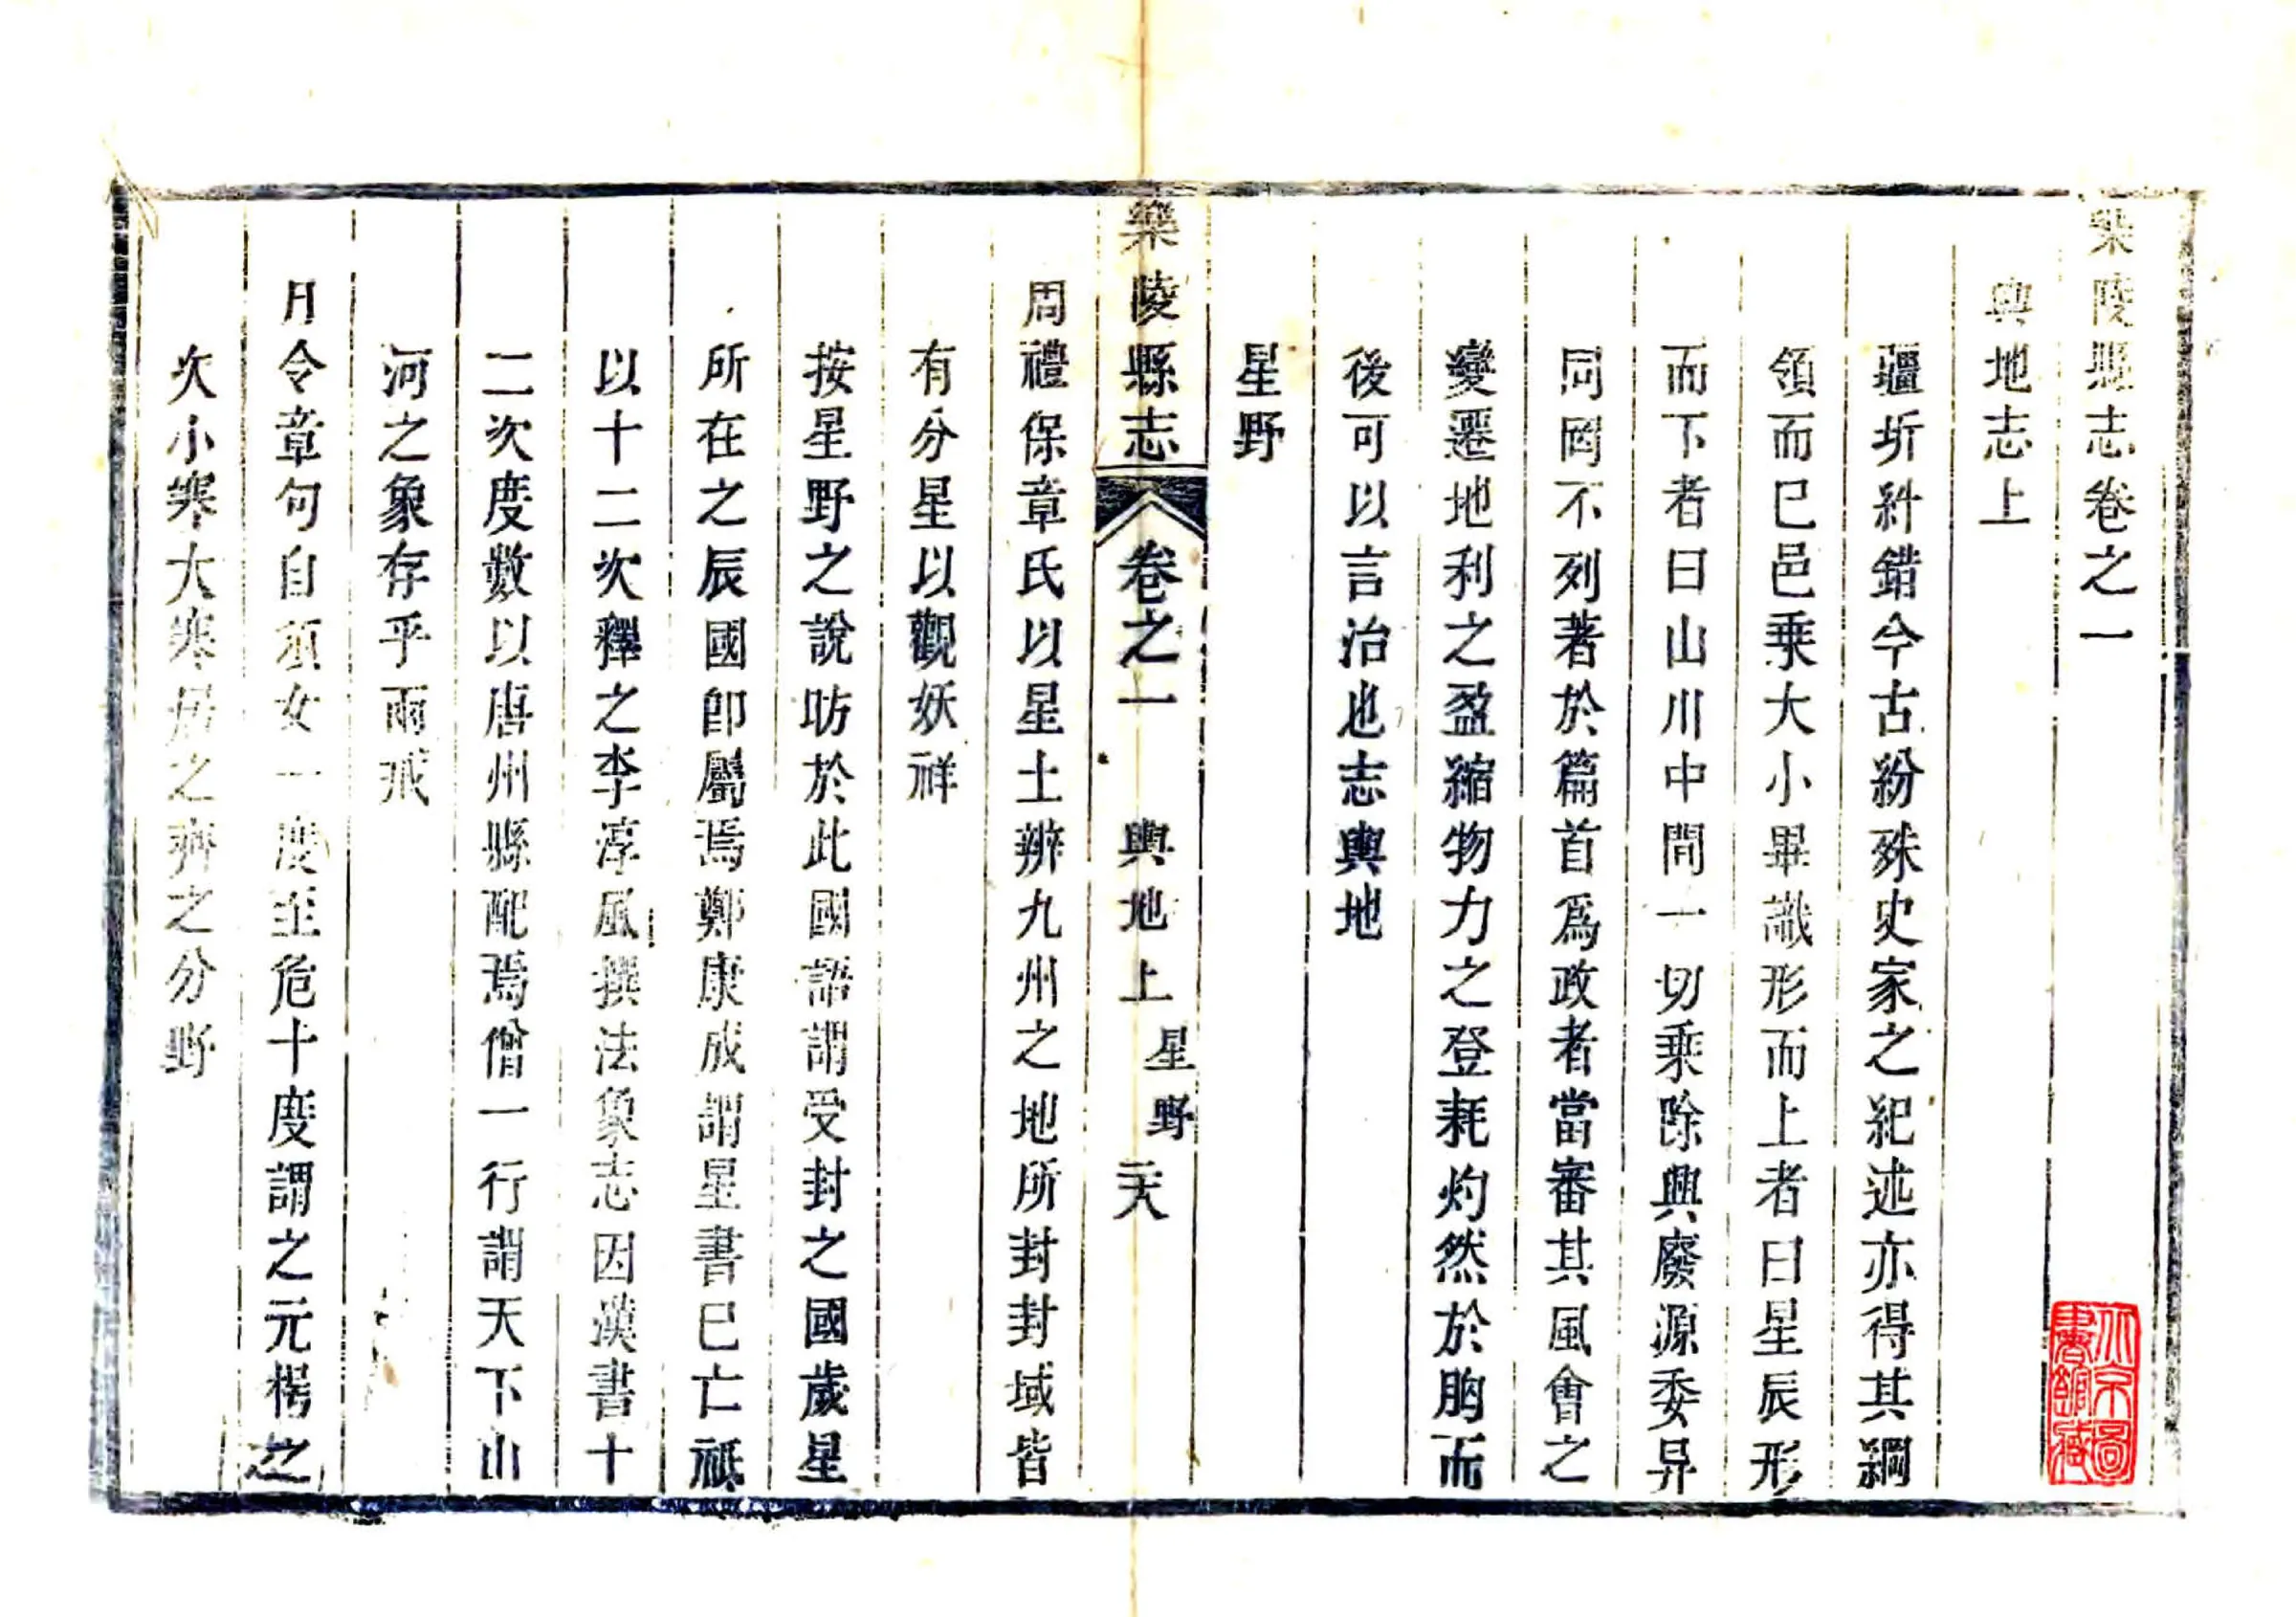 樂陵縣志卷之一
輿地志上
疆圻糾錯今古紛殊史家之紀述亦得其綱
領而已邑乘大小畢識形而上者曰星辰形
而下者曰山川中間一切乘除興廢源委异
同罔不列著於篇首爲政者當審其風會之
變遷地利之盈縮物力之登耗灼然於胸而
後可以言治也志輿地
星野
樂陵縣志 卷之一 輿地上 星野 二六
周禮保章氏以星土辨九州之地所封封域皆
有分星以觀妖祥
按星野之說昉於此國語謂受封之國歲星
所在之辰國卽屬焉鄭康成謂星書已亡祗
以十二次釋之李淳風撰法象志因漢書十
二次度數以唐州縣配焉僧一行謂天下山
河之象存乎兩戒
月令章句自須女一度至危十度謂之元枵之
次小寒大寒居之齊之分野
北京圖書館藏